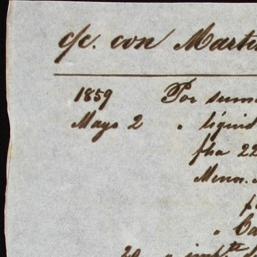 c/c. con Marti
1859 Por sum
Mayo 2 " liquid
fha 22
Menos.
" Ca
20 "